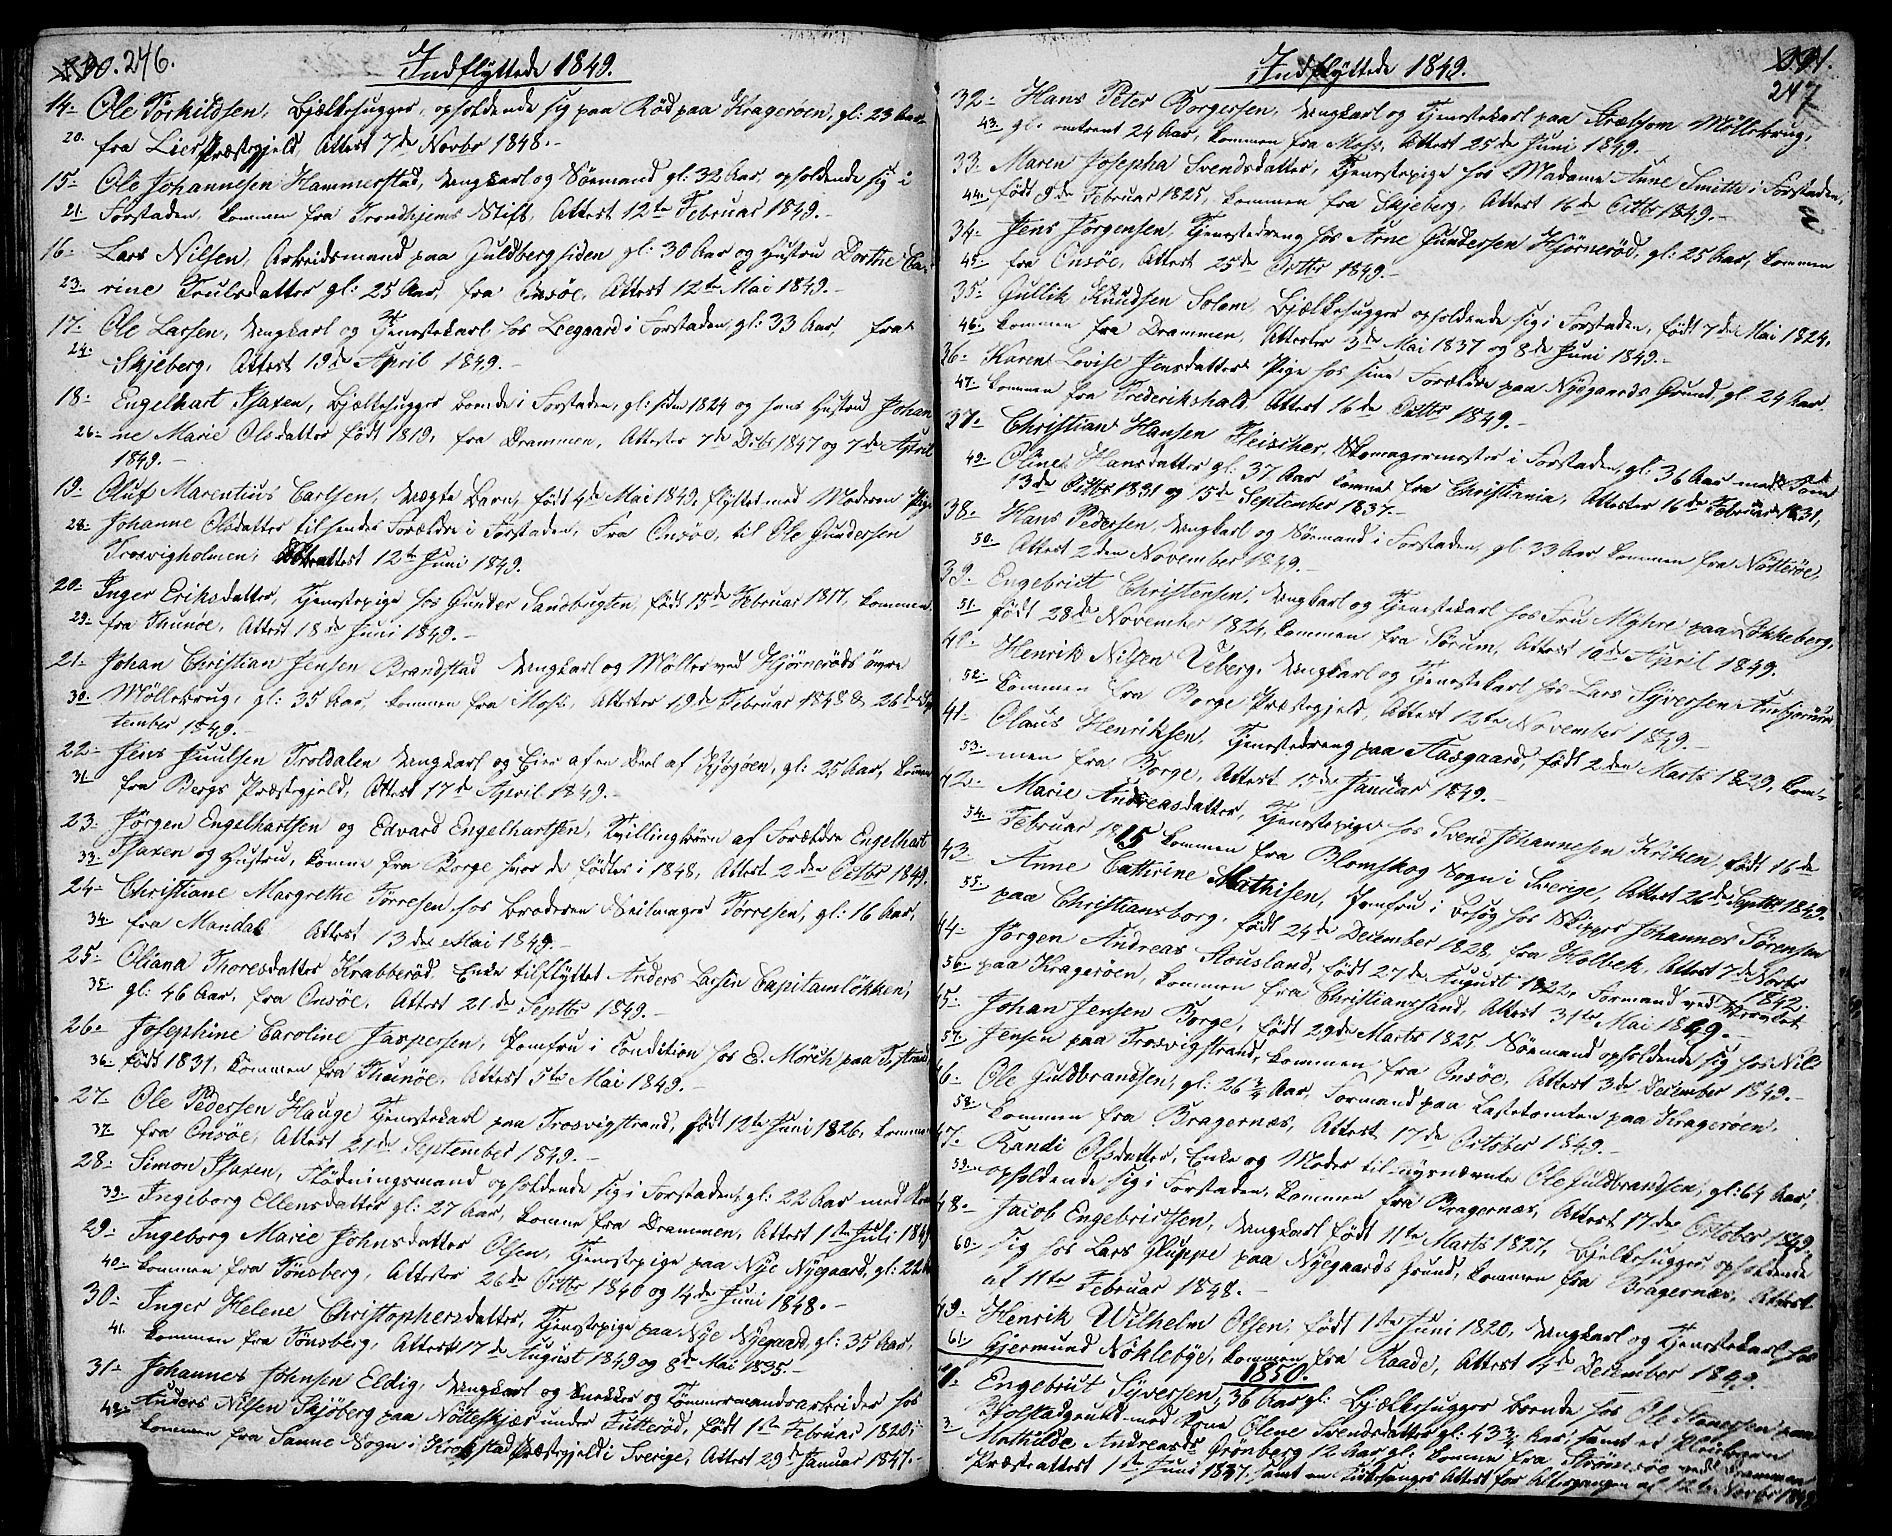 246.
Indflyttede 1849.
14. Ole Torkildsen, Bjælkehugger, opholdende sig paa Rød paa Kragerøen, gl: 23 Aar
20. fra Lier Præstegjeld, Attest 7de Novbr 1848.-
15. Ole Johannesen Hammerstad, Ungkarl og Sømand gl: 32 Aar, opholdende sig i
21. Forstaden, kommen fra Trondhjems Stift, Attest 12te Februar 1849.-
16. Lars Nilsen, Arbeidsmand paa Guldbergsiden gl: 30 Aar og Hustru Dorthe Ca-
23. rine Trulsdatter gl: 25 Aar, fra Onsøe, Attest 12te Mai 1849.-
17. Ole Larsen, Ungkarl og Tjenestekarl hos Leegaard i Forstaden, gl: 33 Aar, fra
24. Skjeberg, Attest 19de April 1849.-
18. Engelhart Isaxen, Bjælkehugger boende i Forstaden, gl: siden 1824 og hans Hustru Johan
26. ne Marie Olsdatter født 1819, fra Drammen, Attester 7de Debr 1847 og 7de April
1849.-
19. Oluf Marentius Carlsen, Uægte Barn, født 4de Mai 1849, flyttet med Moderen Pige
28. Johanne Olsdatter til hendes Forældre i Forstaden, Fra Onsøe, til Ole Gundersen
Trosvigholmen, attest 12te Juni 1849.
20. Inger Eriksdatter, Tjenestepige hos Gunder Sandbugten, født 15de Februar 1817, kommen
29. fra Thunøe, Attest 18de Juni 1849.-
21. Johan Christian Jensen Brandstad Ungkarl og Møller ved Hjørnerøds øvre
30. Møllebrug, gl: 35 Aar, kommen fra Moss, Attester 19de Februar 1848 & 26de Sep
tember 1849.-
22. Jens Juulsen Troldalen Ungkarl og Eier af en Deel af Kjøjøen, gl: 25 Aar, kommen
31. fra Bergs Præstegjeld, Attest 17de April 1849.-
23. Jørgen Engelhartsen og Edvard Engelhartsen, Tvillingbørn af Forældre Engelhart
33. Isaxen og Hustru, komne fra Borge hvor de fødtes i 1848, Attest 2den Octbr 1849.
24. Christiane Margrethe Tørresen hos Broderen Seilmager Tørresen, gl: 16 Aar,
34. fra Mandal Attest 13de Mai 1849.-
25. Oliana Thoresdatter Krabberød, Enke tilflyttet Anders Larsen Capitamløkken,
35. gl: 46 Aar, fra Onsøe, Attest 21de Septbr 1849.-
26. Josephine Caroline Jaspersen, Jomfru i Condition hos E. Mörch paa Tstrand
36. født 1831, kommen fra Thunøe, Attest 5te Mai 1849.-
27. Ole Pedersen Hauge Tjenestekarl paa Trosvigstrand, født 12te Juni 1826, kommen
37. fra Onsøe, Attest 21de September 1849.-
28. Simon Isaxen, Flødningsmand opholdende sig i Forstaden, gl: 22 Aar med Kone
39. Ingeborg Ellensdatter gl: 27 Aar, komne fra Drammen, Attest 1ste Juli 1849
29. Ingeborg Marie Johnsdatter Olsen, Tjenestepige paa Nye Nyegaard, gl: 22 Aar
40. kommen fra Tønsberg, Attester 26de Octbr 1840 og 14de Juni 1848.-
30. Inger Helene Christophersdatter, Tjenestepige paa Nye Nyegaard, gl: 35 Aar,
41. kommen fra Tønsberg, Attest 17de August 1849 og 8de Mai 1835.-
31. Johannes Johnsen Eldig, Ungkarl og Snekker og Tømmermandsarbeider hos
42. Anders Nilsen Skjøberg paa Nøtteskjær under Tutterød, født 1ste Februar 1820,
kommen fra Sanne Sogn i Krokstad Præstegjeld i Sverige, Attest 29de Januar 1847.-
247
Indflyttede 1849.
32. Hans Peter Borgersen, Ungkarl og Tjenestekarl paa Møllebrug,
43. gl: omtrent 24 Aar, kommen fra Moss, Attest 25de Juni 1849.
33. Maren Josepha Svendsdatter, Tjenestepige hos Madame Anne Smitts i Forstaden,
44. født 9de Februar 1825, kommen fra Skjeberg, Attest 16de Octbr 1849.-
34. Jens Jørgensen, Tjenestedreng hos Arne Gundersen Hjørnerød, gl: 25 Aar, kommen
45. fra Onsøe, Attest 25de Octbr 1849.-
35. Gullik Knudsen Solem, Bjælkehugger opholdende sig i Forstaden, født 7de Mai 1824,
46. kommen fra Drammen, Attester 3de Mai 1837 og 8de Juni 1849.-
36. Karen Lovise Jensdatter Pige hos sine Forældre paa Nyegaards Grund, gl. 24 Aar.
47. kommen fra Frederikshald, Attest 16de Octbr 1849.-
37. Christian Hansen Fleischer, Skomagermester i Forstaden, gl: 36 Aar med Kone
49. Oline Hansdatter gl: 37 Aar komne fra Christiania, Attester 16de Februar 1831,
13de Octbr 1831 og 15de September 1837.-
38. Hans Pedersen, Ungkarl og Sømand i Forstaden, gl: 33 Aar kommen fra Nøtterøe,
50. Attest 2den November 1849.-
39. Engebrict Christensen, Ungkarl og Tjenestekarl hos Fru Myhre paa Løkkeberg,
51. født 28de November 1824, kommen fra Sørum, Attest 10de April 1849.
40. Henrik Nilsen Veberg, Ungkarl og Tjenestekarl hos Lars Syversen
52. kommen fra Borge Præstegjeld, Attest 12te November 1849.-
41. Olaus Henriksen, Tjenestedreng paa Aasgaard, født 2den Marts 1829, kom-
53. men fra Borge, Attest 15de Januar 1849.-
42. Marie Andreasdatter, Tjenestepige hos Svend Johannesen Kriken, født 16de
54. Februar 1815 kommen fra Blomskog Sogn i Sverige, Attest 26de Septbr 1849.
43. Anne Cathrine Mathisen, Jomfru i besøg hos Skipper Johannes Sørensen
55. paa Christiansborg, født 24de December 1828, fra Holbek, Attest 7de Novbr
1842.
44. Jørgen Andreas Stousland, født 27de August 1822, Formand ved
56. paa Kragerøen, kommen fra Christianssand, Attest 31te Mai 1849.-
45. Johan Jensen Borge, født 29de Marts 1825, Sømand opholdende sig hos Nils
57. Jensen paa Trosvigstrand, kommen fra Onsøe, Attest 3de December 1849.-
46. Ole Guldbrandsen, gl: 26 3/4 Aar, Formand paa Lastetomten paa Kragerøen,
58. kommen fra Bragernæs, Attest 17de October 1849.-
47. Randi Olsdatter, Enke og Moder til nysnævnte Ole Guldbrandsen, gl: 64 Aar,
59. opholdende sig i Forstaden, kommen fra Bragernæs, Attest 17de October 1849.
48. Jacob Engebrictsen, Ungkarl født 11te Marts 1827, Bjelkehugger, opholdende
60. sig hos Lars Gluppe paa Nyegaards Grund, kommen fra Bragernæs, Attest
af 11te Februar 1848.-
49. Henrik Wilhelm Olsen, født 1ste Juni 1820, Ungkarl og Tjenestekarl hos
61. Gjermund Nøklebye, kommen fra Raade, Attest 4de December 1849.
1850.
1. Engebrict Syversen, 36 Aar gl: Bjælkehugger boende hos Ole paa
grund med Kone Olene Svendsdatter gl: 43 3/4 Aar, samt et Pleiebarn
3. Mathilde Andreasd. Grønberg 12 Aar gl. komne fra Strømsøe ved Drammen
Præsteattest 1ste Juni 1837, samt en Attest for Altergangen af 12te Novbr 1849